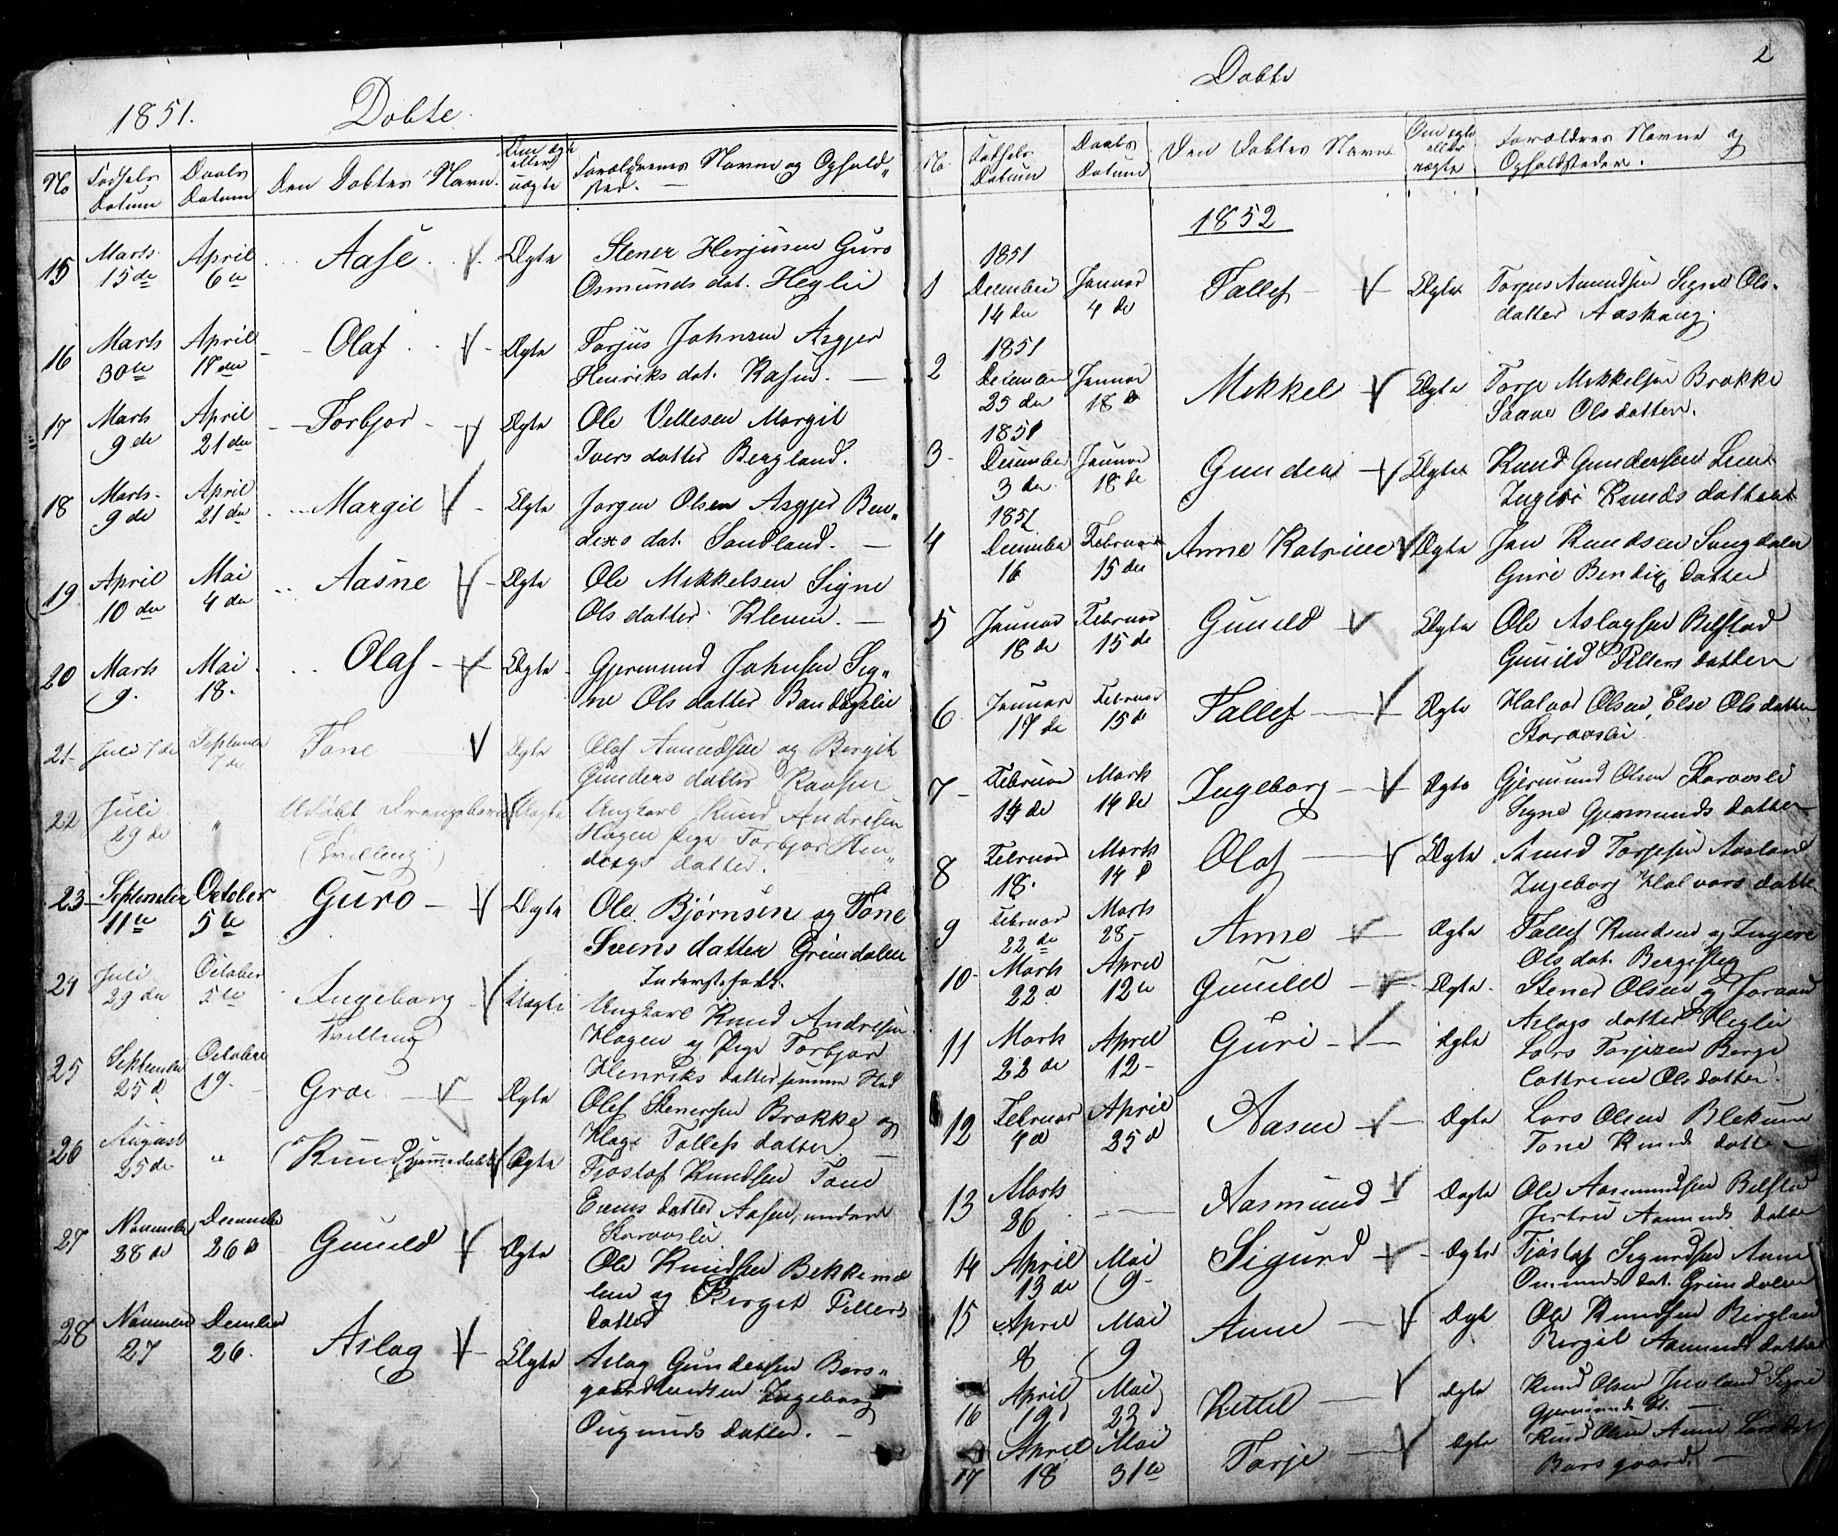 1851. Døbte.
No Fødsels Datum Daabs Datum Den Døbtes Navn. Om ægte eller uægte Forældrenes Navne og Opholds„
sted. —
15 Marts 15de April 6te Aase Ægte Stener Herjusen Guro
Osmunds dat. Heglie
16 Marts 30te April 18de Olaf Ægte Torjus Johnsen Asgjer
Henriks dat. Rasen. —
17 Marts 9de April 21de Torbjor Ægte Ole Vettesen Margit
Ivers datter Bergland.
18 Marts 9de April 21de Margit Ægte Jorgen Olsen Asgjer Ben„
dixs dat. Sandland. —
19 April 10de Mai 4de Aasne Ægte Ole Mekkelsen Signe
Ols datter Klemm. —
20 Marts 9. Mai 18. Olaf Ægte Gjermund Johnsen Sig„
ne Ols datter Bandaglie
21 Juli 7de September 7de Tone Ægte Olaf Aamundsen og Bergit
Gunders datter Raasen
22 Juli 29de " Udøbt Drengebarn (Tvilling) Uægte Ungkarl Knud Andresen
Hagen Pige Torbjor Hen„
driks datter.
23 September 11te October 5te Guro Ægte Ole Bjørnsen og Tone
Svens datter Grimdalen
Inderstefolk.
24 Juli 29de October 5te Ingeborg Tvilling Uægte Ungkarl Knud Andresen
Hagen og Pige Torbjor
Henriks datter samme Sted
25 September 25d October 19. Groe Ægte Olef Stenersen Brokke og
Hage Tallefs datter. —
26 August 25de " Knud (hjemmedøbt) Ægte Tjostof Knudsen Tone
Evens datter Aasen, under
Skaraaslie
27 November 28de December 26d Gunild Ægte Ole Knudsen Bekkemoe
len og Bergit Pellers
datter
28 November 27 December 26. Aslag Ægte Aslag Gundersen Bors„
gaard Ingeborg
Ougunds datter. —
Døbte 2
No Fødsels Datum Daabs Datum Den Døbtes Navn Om ægte eller uægte Forældres Navne og
Opholdsteder.
1852
1 1851 December 14de Januar 4de Tallef Ægte Torjus Aanundsen Signe Ols„
datter Aashaug.
2 1851 December 25de Januar 18de Mekkel Ægte Torje Mekkelsen Brokke
Saave Olsdatter.
3 1851 December 3de Januar 18de Gunder Ægte Knud Gundersen Lien
Ingebor Knuds datter
4 1851 December 16 Februar 15de Anne Katrine Ægte Jon Knudsen Songdalen
Guri Bendix datter
5 Januar 18de Februar 15de Gunild Ægte Ole Aslagsen Bilstad
Gunild Pellers datter
6 Januar 17de Februar 15d Tallef Ægte Halvor Olsen, Else Ols datter
Skaraaslie
7 Februar 14de Marts 14de Ingeborg Ægte Gjermund Olsen Skaraaslie
Signe Gjermunds datter
8 Februar 18. Marts 14d Olaf Ægte Aanund Torjesen Aasland
Ingeborg Halvors datter
9 Februar 22de Marts 28 Anne Ægte Tallef Knudsen og Ingere
Ols dat. Bergisteg
10 Marts 22d April 12te Gunild Ægte Stener Olsen og Joraand
Aslags datter Heglie
11 Marts 22de April 12 Guri Ægte Lars Torjesen Berge
Cattrine Olsdatter.
12 Februar 4d April 25d Aasne Ægte Lars Olsen Blekum
Tone Knuds datter
13 Marts 26 Aasmund Ægte Ole Aanundsen Bilstad
Jertru Aanunds datter
14 April 13de Mai 9 Sigurd Ægte Tjøstof Sigurdsen Anne
Osmunds dat. Grimdalen
15 April 8 Mai 9 Anne Ægte Ole Knudsen Bergland
Bergit Aanunds datter
16 April 19d Mai 23 Kittil Ægte Knud Olsen Juvland Sigri
Gjermunds dt.
17 April 18 Mai 31te Torje Ægte Knud Olsen Anne Lars dat
Borsgaard. —